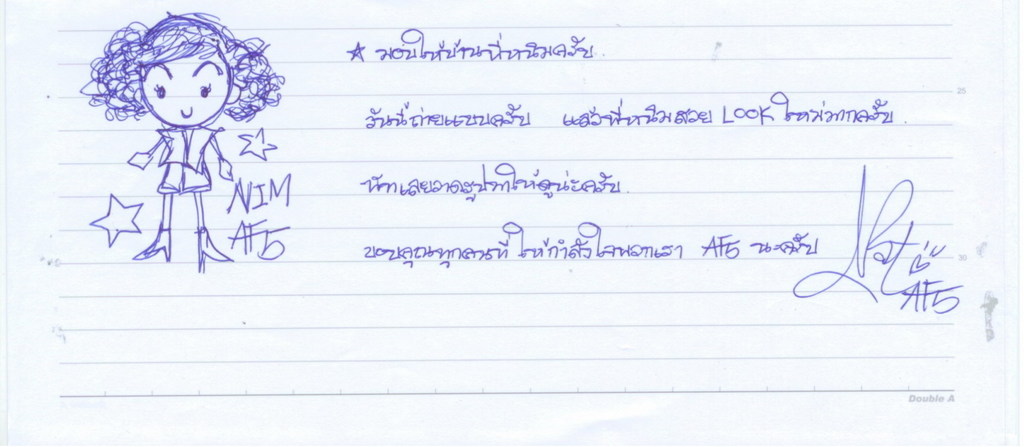 ★ มอบให้บ้านพี่หนิมครับ..
วันนี้ถ่ายแบบครับ แล้วพี่หนิมสวย LOOK ใหม่มากครับ.
นัทเลยวาดรูปมาให้ดูน่ะครับ.
ขอบคุณทุกคนที่ให้กำลังใจพวกเรา AF5 นะครับ
NIM
AF5
AF5
25
30
Double A